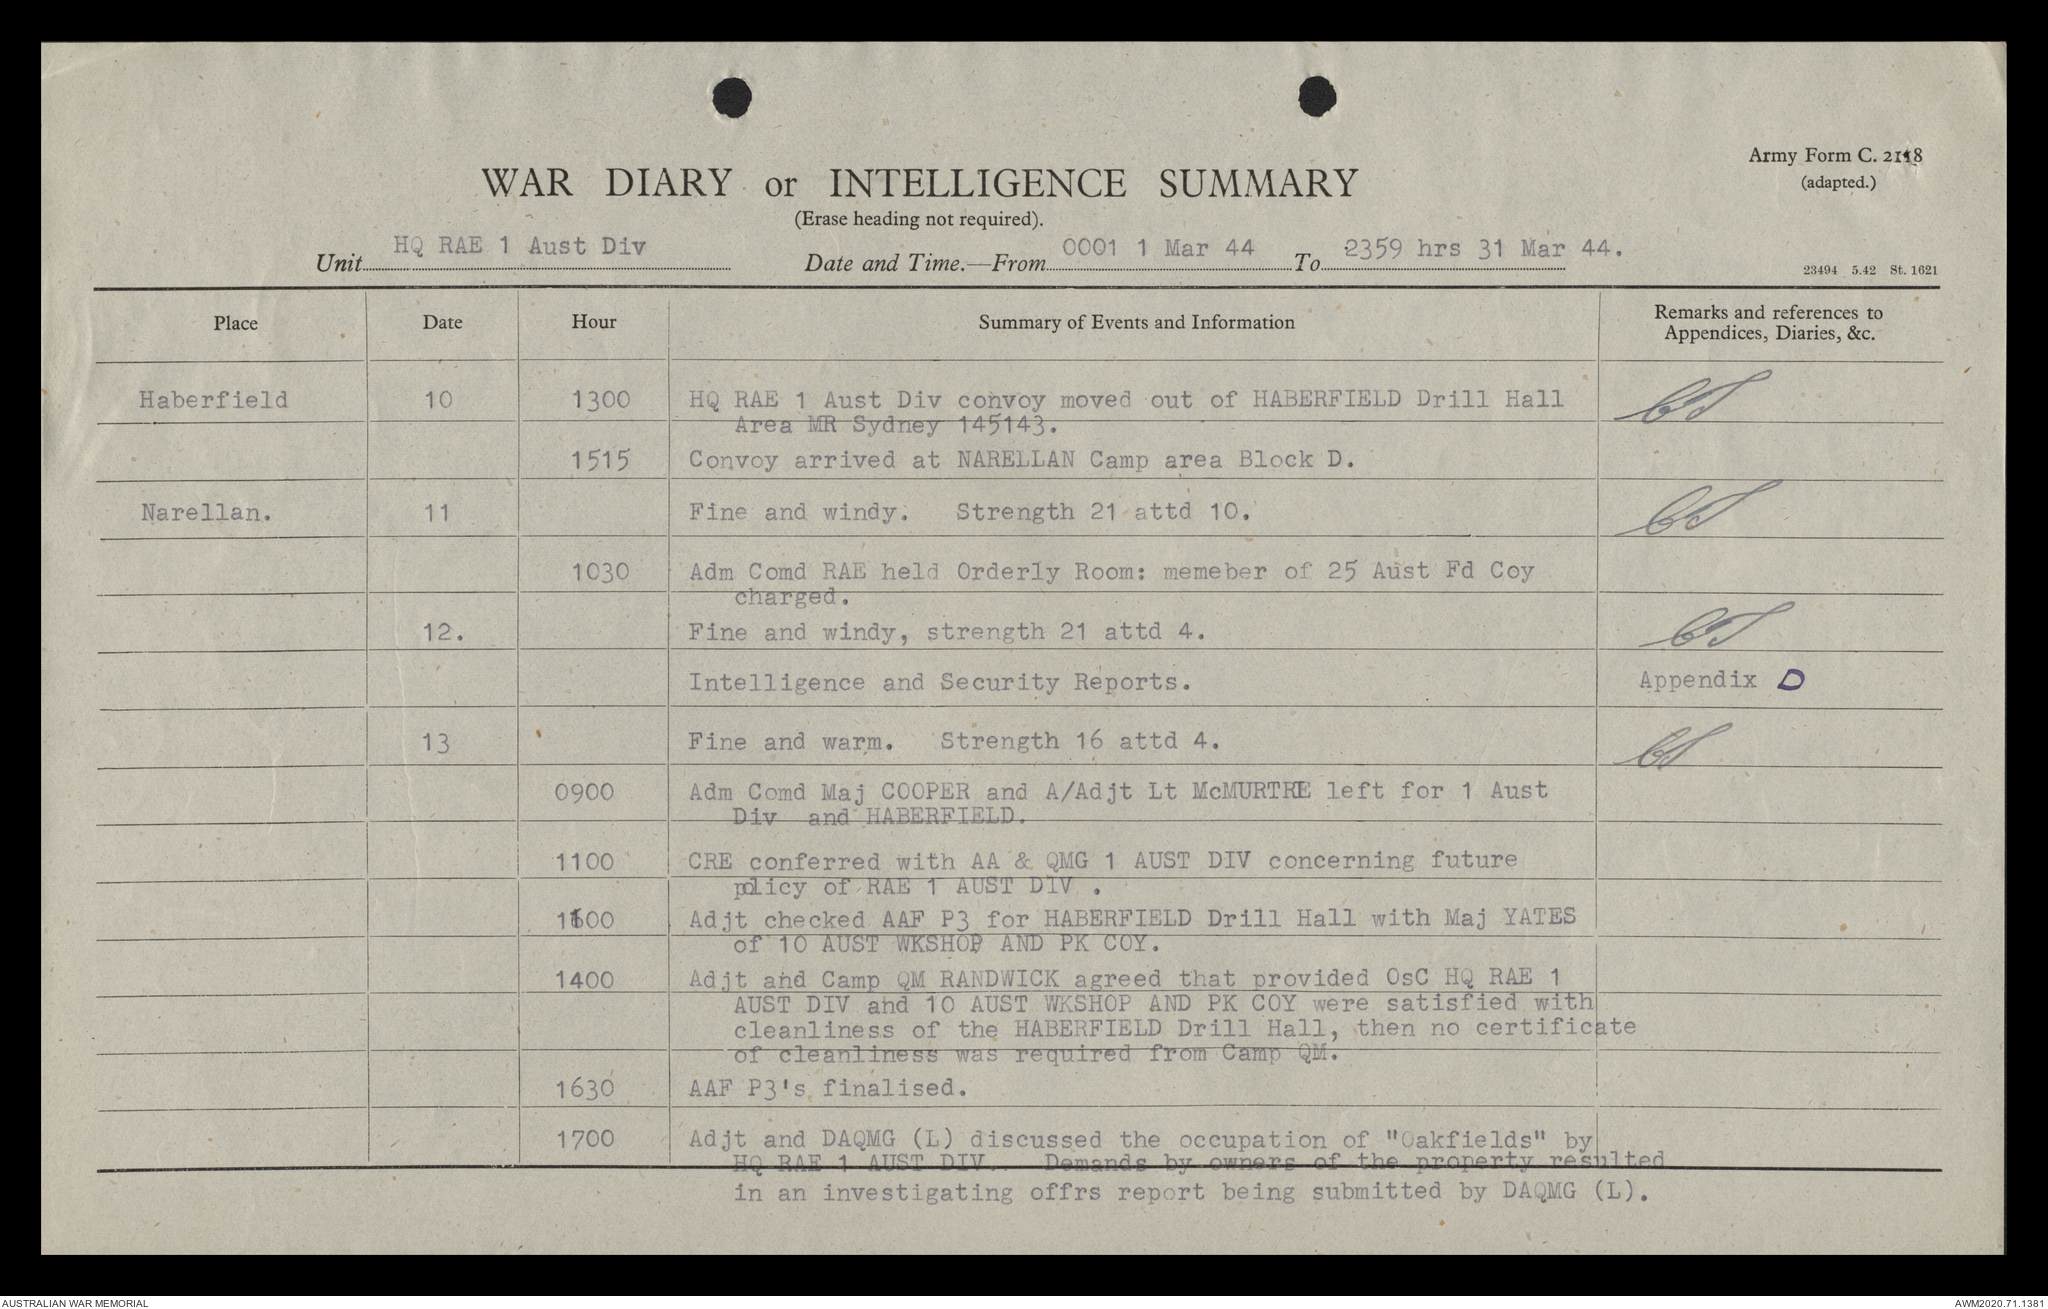 Army Form C. 2118
(adapted.)
WAR DIARY or INTELLIGENCE SUMMARY
(Erase heading not required).
Unit HQ RAE 1 Aust Div Date and Time.—From 0001 1 Mar 44 To 2359 hrs 31 Mar 44.
23494 5.42 St. 1621
Place Date Hour Summary of Events and Information Remarks and references to
Appendices, Diaries, &c.
Haberfield 10 1300 HQ RAE 1 Aust Div convoy moved out of HABERFIELD Drill Hall
Area MR Sydney 145143.
1515 Convoy arrived at NARELLAN Camp area Block D.
Narellan. 11 Fine and windy. Strength 21 attd 10.
1030 Adm Comd RAE held Orderly Room: memeber of 25 Aust Fd Coy
charged.
12. Fine and windy, strength 21 attd 4.
Intelligence and Security Reports. Appendix D
13 Fine and warm. Strength 16 attd 4.
0900 Adm Comd Maj COOPER and A/Adjt Lt McMURTRE left for 1 Aust
Div and HABERFIELD.
1100 CRE conferred with AA & QMG 1 AUST DIV concerning future
policy of RAE 1 AUST DIV .
Adjt checked AAF P3 for HABERFIELD Drill Hall with Maj YATES
of 10 AUST WKSHOP AND PK COY.
1400 Adjt and Camp QM RANDWICK agreed that provided OsC HQ RAE 1
AUST DIV and 10 AUST WKSHOP AND PK COY were satisfied with
cleanliness of the HABERFIELD Drill Hall, then no certificate
of cleanliness was required from Camp QM.
1630 AAF P3's finalised.
1700 Adjt and DAQMG (L) discussed the occupation of "Oakfields" by
HQ RAE 1 AUST DIV. Demands by owners of the property resulted
in an investigating offrs report being submitted by DAQMG (L).
AUSTRALIAN WAR MEMORIAL AWM2020.71.1381